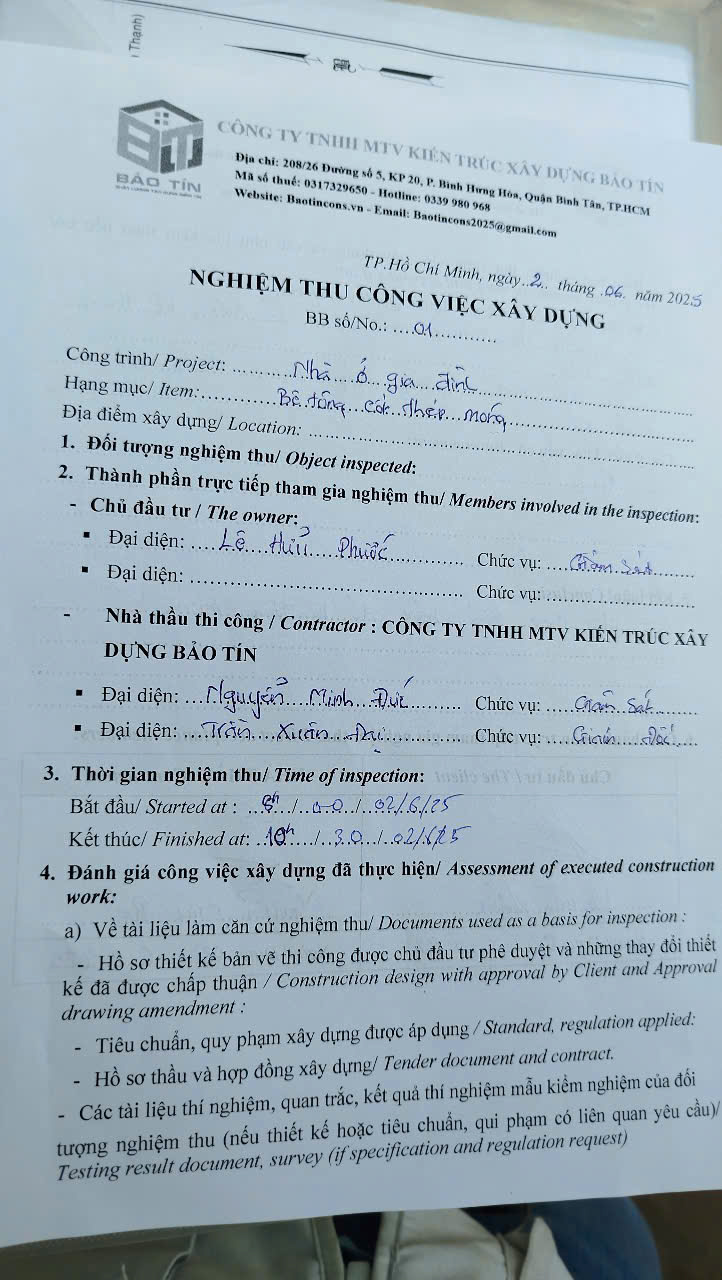 Thanh)
BẢO TÍN
CÔNG TY TNHH MTV KIẾN TRÚC XÂY DỰNG BẢO TÍN
Địa chỉ: 208/26 Đường số 5, KP 20, P. Bình Hưng Hòa, Quận Bình Tân, TP.HCM
Mã số thuế: 0317329650 - Hotline: 0339 980 968
Website: Baotincons.vn - Email: Baotincons2025@gmail.com
TP.Hồ Chí Minh, ngày..2.. tháng .06. năm 2025
NGHIỆM THU CÔNG VIỆC XÂY DỰNG
BB số/No.: ....01............
Công trình/ Project: ...Nhà ở gia đình...
Hạng mục/ Item: ...Bê tông cốt thép móng...
Địa điểm xây dựng/ Location: ...
1. Đối tượng nghiệm thu/ Object inspected:
2. Thành phần trực tiếp tham gia nghiệm thu/ Members involved in the inspection:
- Chủ đầu tư / The owner:
▪ Đại diện: ....Lê Hữu Phước... Chức vụ: ....Giám Sát...
▪ Đại diện: ... Chức vụ: ...
- Nhà thầu thi công / Contractor : CÔNG TY TNHH MTV KIẾN TRÚC XÂY
DỰNG BẢO TÍN
▪ Đại diện: ...Nguyễn Minh Đức... Chức vụ: ...Giám Sát...
▪ Đại diện: ...Trần Xuân... Chức vụ: ...Giám Đốc...
3. Thời gian nghiệm thu/ Time of inspection:
Bắt đầu/ Started at : ..8h../..00../..02/6/25
Kết thúc/ Finished at: ..10h../..30../..02/6/25
4. Đánh giá công việc xây dựng đã thực hiện/ Assessment of executed construction
work:
a) Về tài liệu làm căn cứ nghiệm thu/ Documents used as a basis for inspection :
- Hồ sơ thiết kế bản vẽ thi công được chủ đầu tư phê duyệt và những thay đổi thiết
kế đã được chấp thuận / Construction design with approval by Client and Approval
drawing amendment :
- Tiêu chuẩn, quy phạm xây dựng được áp dụng / Standard, regulation applied:
- Hồ sơ thầu và hợp đồng xây dựng/ Tender document and contract.
- Các tài liệu thí nghiệm, quan trắc, kết quả thí nghiệm mẫu kiểm nghiệm của đối
tượng nghiệm thu (nếu thiết kế hoặc tiêu chuẩn, qui phạm có liên quan yêu cầu)/
Testing result document, survey (if specification and regulation request)